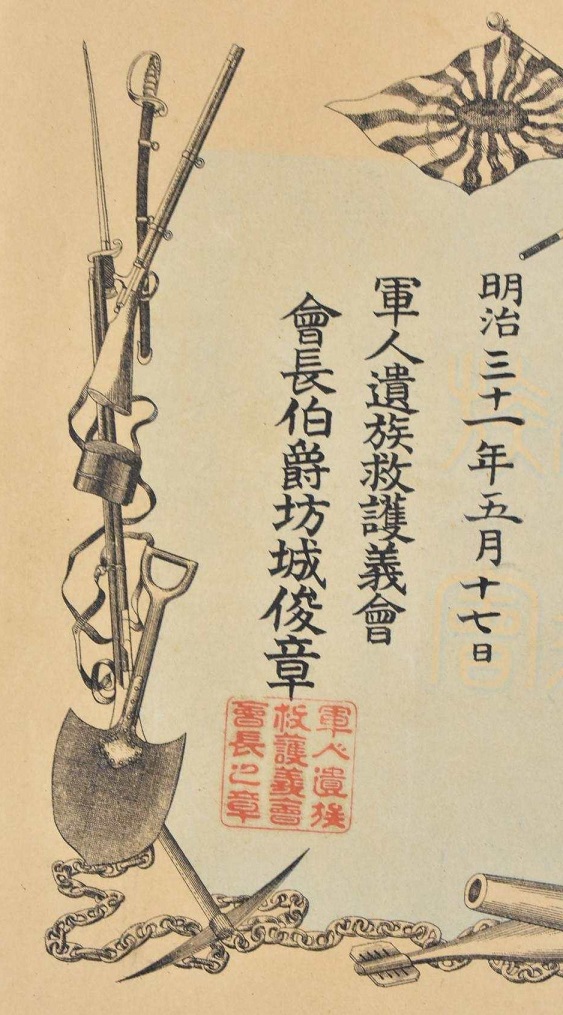 明治三十一年五月十七日
軍人遺族救護義會
會長伯爵坊城俊章
軍人遺族
救護義會
會長之章